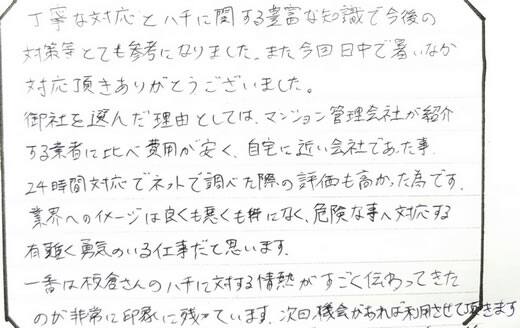 丁寧な対応とハチに関する豊富な知識で今後の
対策等とても参考になりました。また今回日中で暑いなか
対応頂きありがとうございました。
御社を選んだ理由としては、マンション管理会社が紹介
する業者に比べ費用が安く、自宅に近い会社であった事.
24時間対応でネットで調べた際の評価も高かった為です.
業界へのイメージは良くも悪くも特になく、危険な事へ対応する
有難く勇気のいる仕事だと思います.
一番は板倉さんのハチに対する情熱がすごく伝わってきた
のが非常に印象に残っています。次回、機会があれば利用させて頂きます